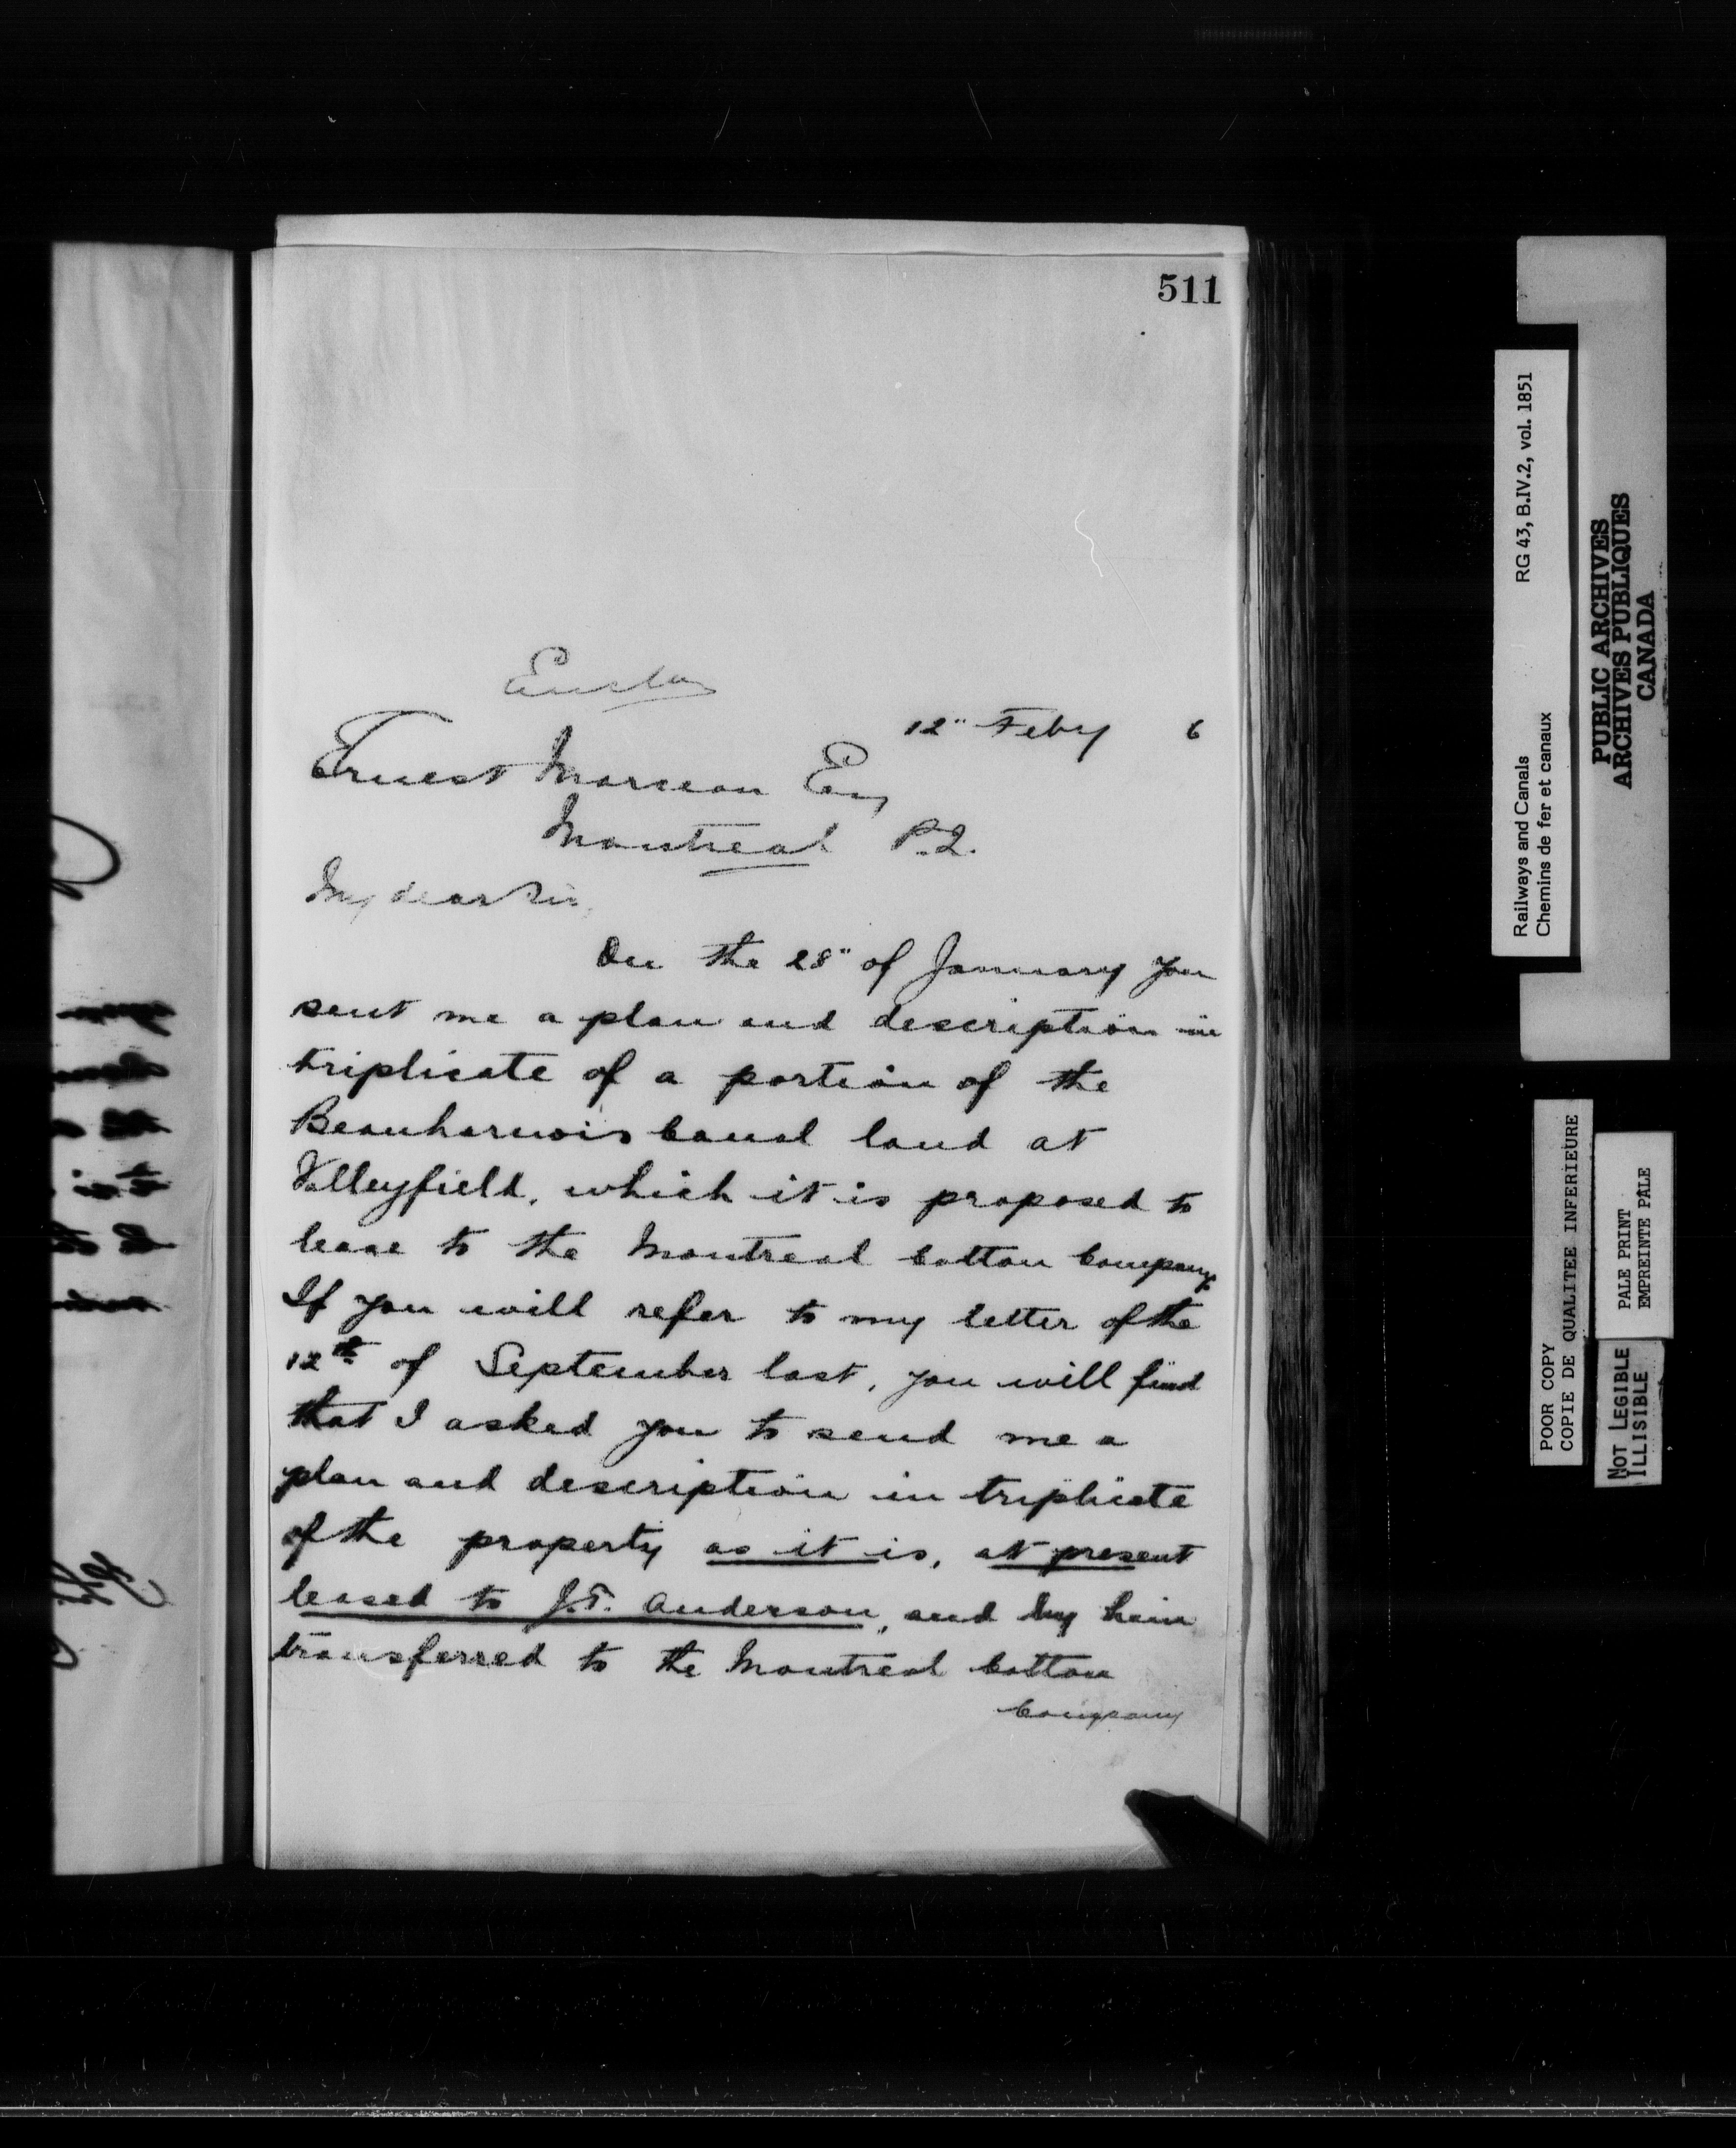 511
Enclos
12" Feby 6
Ernest Marceau Esq
Montreal P.Q.
My dear Sir,
On the 28" of January you
sent me a plan and description in
triplicate of a portion of the
Beauharnois Canal land at
Valleyfield, which it is proposed to
lease to the Montreal Cotton Company.
If you will refer to my letter of the
12th of September last, you will find
that I asked you to send me a
plan and description in triplicate
of the property as it is, at present
leased to J.T. Anderson, and by him
transferred to the Montreal Cotton
Company
RG 43, B.IV.2, vol. 1851
Railways and Canals
Chemins de fer et canaux
PUBLIC ARCHIVES
ARCHIVES PUBLIQUES
CANADA
POOR COPY
COPIE DE QUALITEE INFERIEURE
PALE PRINT
EMPREINTE PÂLE
NOT LEGIBLE
ILLISIBLE